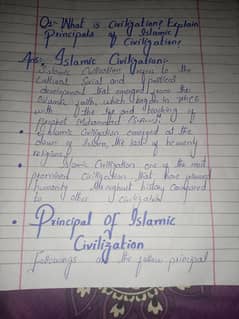 Qs:- What is Civilization? Explain
Principals of Islamic
Civilization?
Ans:- Islamic Civilization:-
Islamic Civilization to the
Cultural Social and political
development that emerged from the
Islamic faith, which began in
with the and teaching of
prophet Muhammad
Islamic Civilization emerged at the
down of Islam, the last of heavenly
religions.
Islamic Civilization one of the most
prominent Civilization that have
humanity throughout history compared
to other Civilization
• Principal of Islamic
Civilization
Followings the follow principal